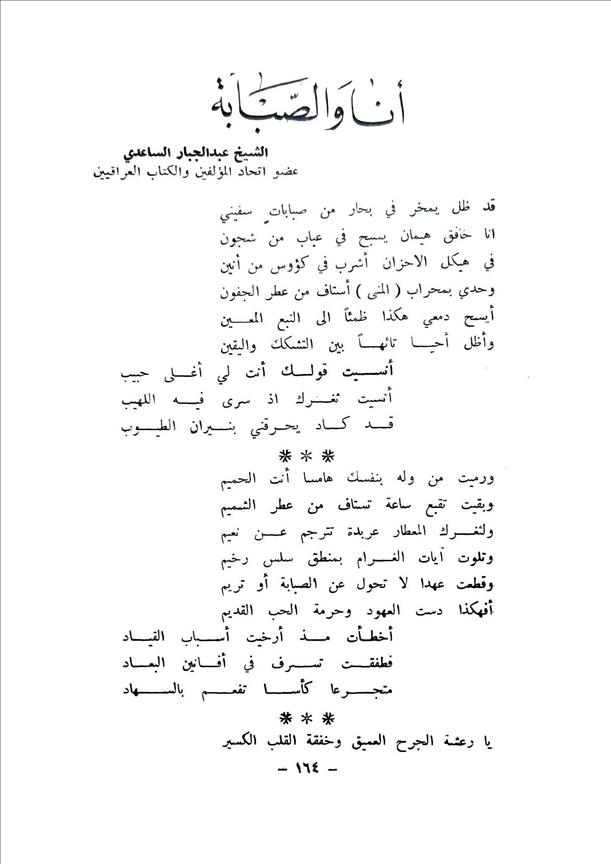 أنا وَالصّبَابَة
الشيخ عبدالجبار الساعدي
عضو اتحاد المؤلفين والكتاب العراقيين
قد ظل يمخر في بحار من صبابات سفيني
انا خافق هيمان يسبح في عباب من شجون
في هيكل الاحزان أشرب في كؤوس من أنين
وحدي بمحراب ( المنى ) أستاف من عطر الجفون
أيسح دمعي هكذا ظمئاً الى النبع المعـــين
وأظل أحيـــا تائهـــاً بين التشكك واليقين
أنسيت قولـــك أنت لي أغـلى حبيب
أنسيت ثغـرك اذ سرى فيـــه اللهيب
قـــد كـــاد يحـرقني بنـــيران الطيـــوب
* * *
ورميت من وله بنفسك هامسا أنت الحميم
وبقيت تقبع ساعة تستاف من عطر الشميم
ولثغـــرك المعطار عربدة تترجم عـــن نعيم
وتلوت آيات الغـــرام بمنطق سلس رخيم
وقطعت عهدا لا تحول عن الصبابة أو تريم
أفهكذا دست العهود وحرمة الحب القديم
أخطـأت مـــذ أرخيت أســـباب القيـــاد
فطفقـــت تســـرف في أفـــانين البعـــاد
متجـــرعا كأســـا تفعـــم بالســـهاد
* * *
يا رعشة الجرح العميق وخفقة القلب الكسير
– ١٦٤ –